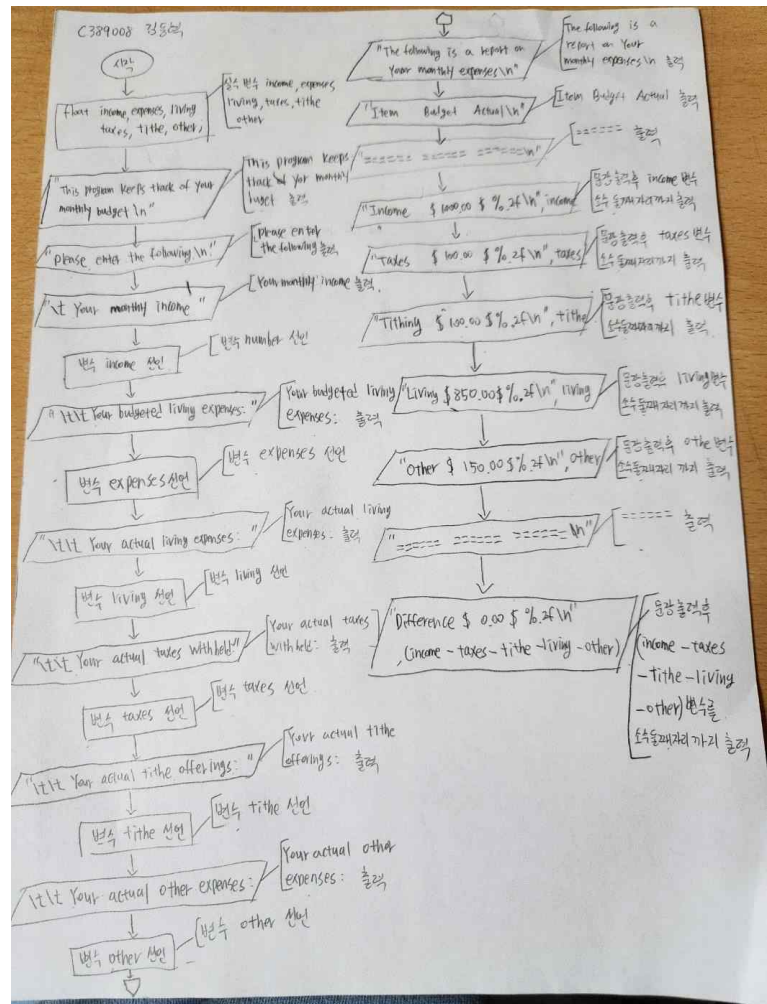 C389008 김동혁
시작
float income, expenses, living
taxes, tithe, other,
실수 변수 income, expenses,
living, taxes, tithe
other
"This program keeps track of Your
monthly budget \n"
This program keeps
track of yor monthly
buget 출력
"please enter the following \n"
please enter
the following 출력
"\t Your monthly income "
Your monthly income 출력.
변수 income 선언
변수 number 선언
"\t\t Your budgeted living expenses: "
Your budgeted living
expenses: 출력
변수 expenses 선언
변수 expenses 선언
"\t\t Your actual living expenses: "
Your actual living
expenses: 출력
변수 living 선언
변수 living 선언
"\t\t Your actual taxes withheld"
Your actual taxes
withheld: 출력
변수 taxes 선언
변수 taxes 선언
"\t\t Your actual tithe offerings: "
Your actual tithe
offerings: 출력
변수 tithe 선언
변수 tithe 선언
"\t\t Your actual other expenses: "
Your actual other
expenses: 출력
변수 other 선언
변수 other 선언
"The following is a report on
Your monthly expenses \n"
The following is a
report on Your
monthly expenses \n 출력
"Item Budget Actual \n"
Item Budget Actual 출력
"====== ====== ======\n"
====== 출력
"Income $ 1000.00 $ %.2f \n", income
문장출력후 income 변수
소수 둘째자리까지 출력
"Taxes $ 100.00 $ %.2f \n", taxes
문장출력후 taxes 변수
소수 둘째자리까지 출력
"Tithing $ 100.00 $ %.2f \n", tithe
문장출력후 tithe 변수
소수둘째자리까지 출력
"Living $ 850.00 $ %.2f \n", living
문장출력후 living 변수
소수둘째자리까지 출력
"Other $ 150.00 $ %.2f \n", Other
문장출력후 othe 변수
소수둘째자리 까지 출력
"====== ====== ====== \n"
====== 출력
"Difference $ 0.00 $ %.2f \n"
, (income - taxes - tithe - living - other)
문장출력후
(income - taxes
- tithe - living
- other) 변수를
소수둘째자리까지 출력